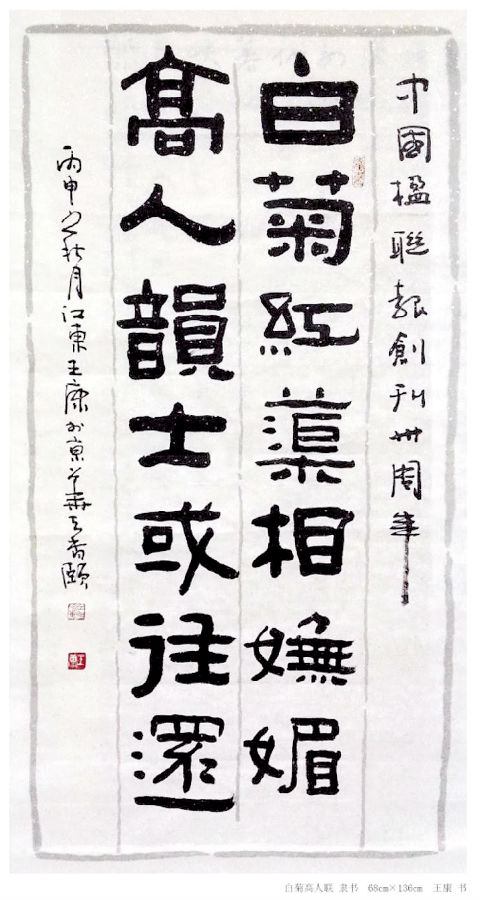 中國楹聯報創刊卅周年
白菊紅蕖相嫵媚
髙人韻士或往還
丙申之秋月江東王康於京華天香頤
白菊高人联 隶书 68cm×136cm 王康 书